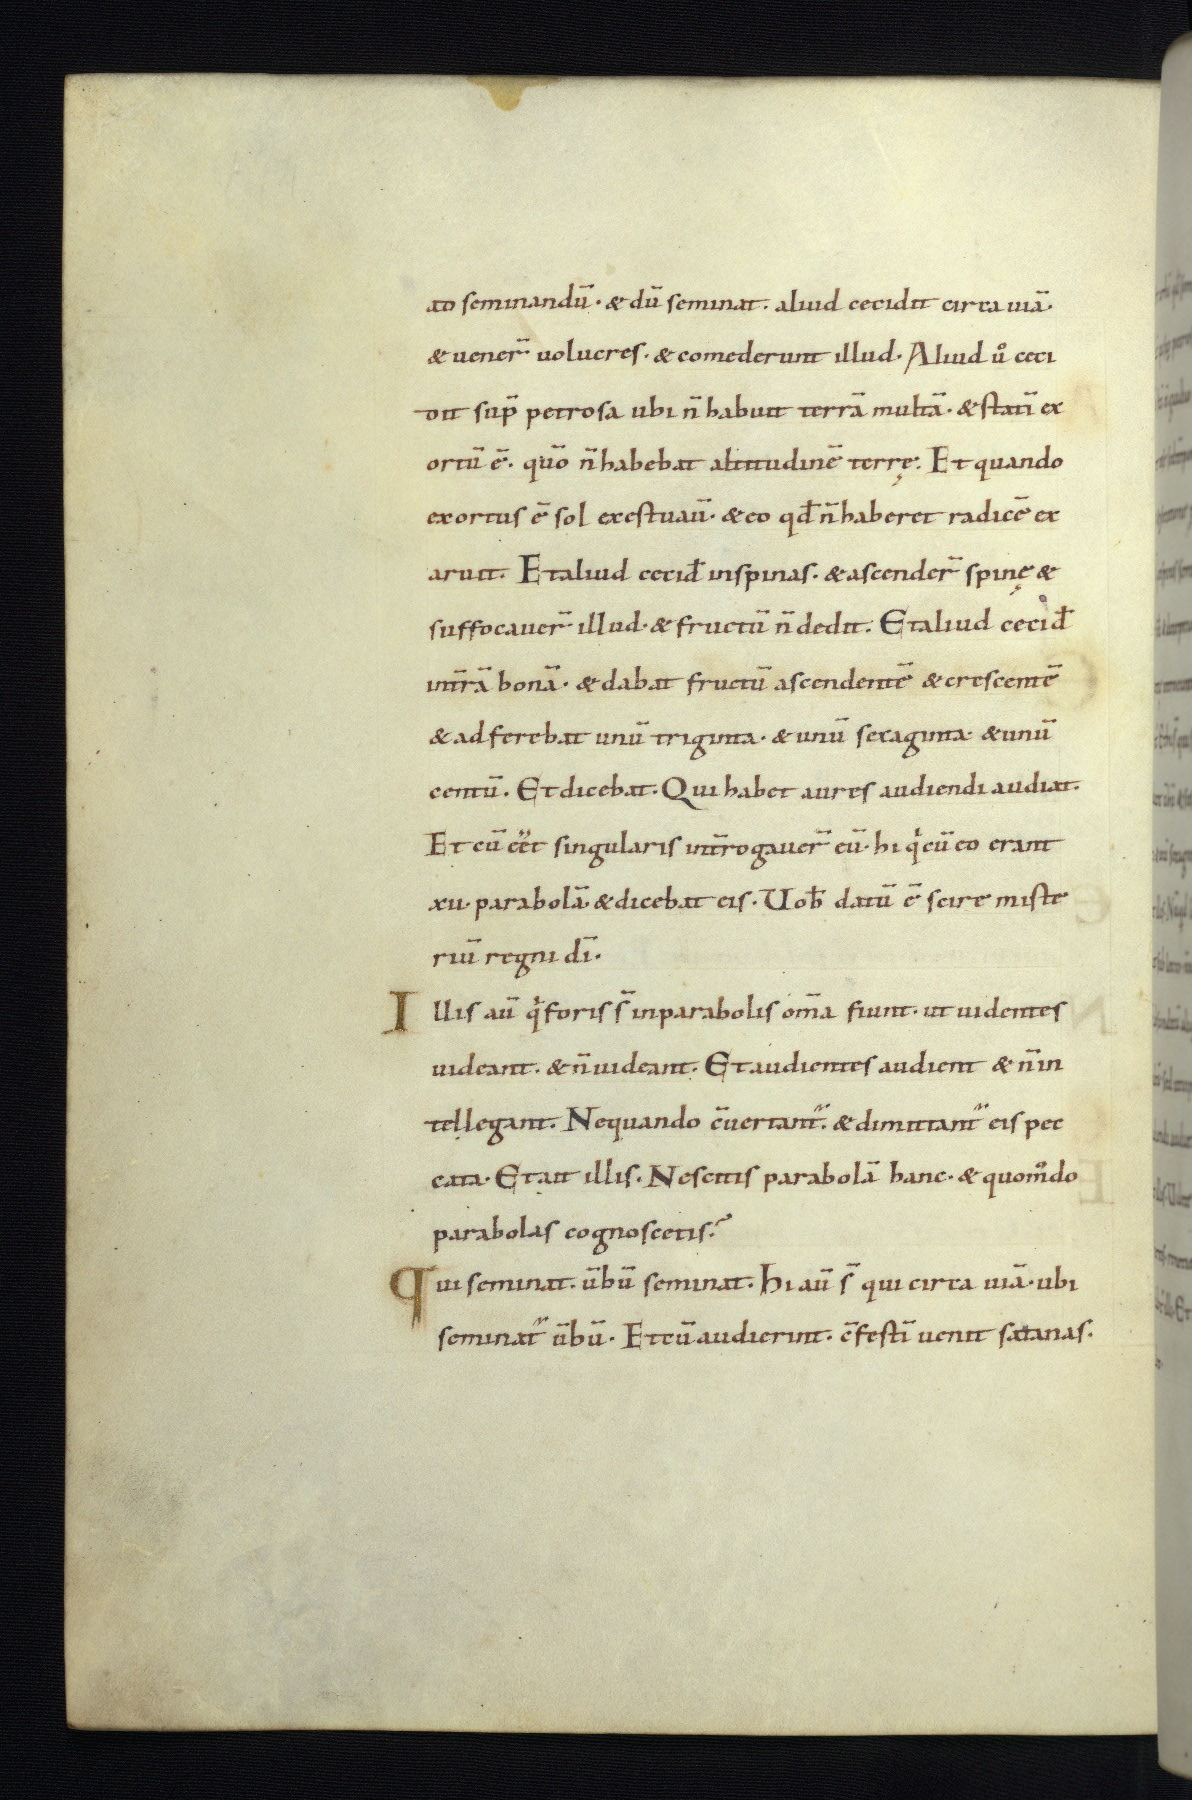 ad seminandū· & dū seminat· aliud cecidit circa uiā·
& uener̄ uolucres· & comederunt illud· Aliud u̇ ceci
dit sup̄ petrosa ubi n̄ habuit terrā multā· & statī ex
ortū ē· qūo n̄ habebat altitudinē terrę· Et quando
exortus ē sol exestuauī· & eo qd̄ n̄ haberet radicē ex
aruit· Et aliud cecid̄ in spinas· & ascender̄ spinę &
suffocauer̄ illud· & fructū n̄ dedit· Et aliud cecid̄
int̄rā bonā· & dabat fructū ascendentē & crescentē
& adferebat unū triginta· & unū sexaginta· & unū
centū· Et dicebat· Qui habet aures audiendi audiat·
Et cū eēt singularis int̄rogauer̄ eū· hi qͥ cū eo erant
xii· parabolā· & dicebat eis· Uob̄ datū ē scire miste
riū regni dī·
Illis aū qͥ foris s̄ in parabolis om̄a fiunt· ut uidentes
uideant· & n̄ uideant· Et audientes audient & n̄ in
tellegant· Nequando c̄uertant᷑· & dimittant᷑ eis pec
cata· Et ait illis· Nescitis parabolā hanc· & quom̊do
parabolas cognoscetis?
Qui seminat· ūbū seminat· Hi aū s̄ qui circa uiā· ubi
seminat᷑ ūbū· Et cū audierint· c̄festī uenit satanas·